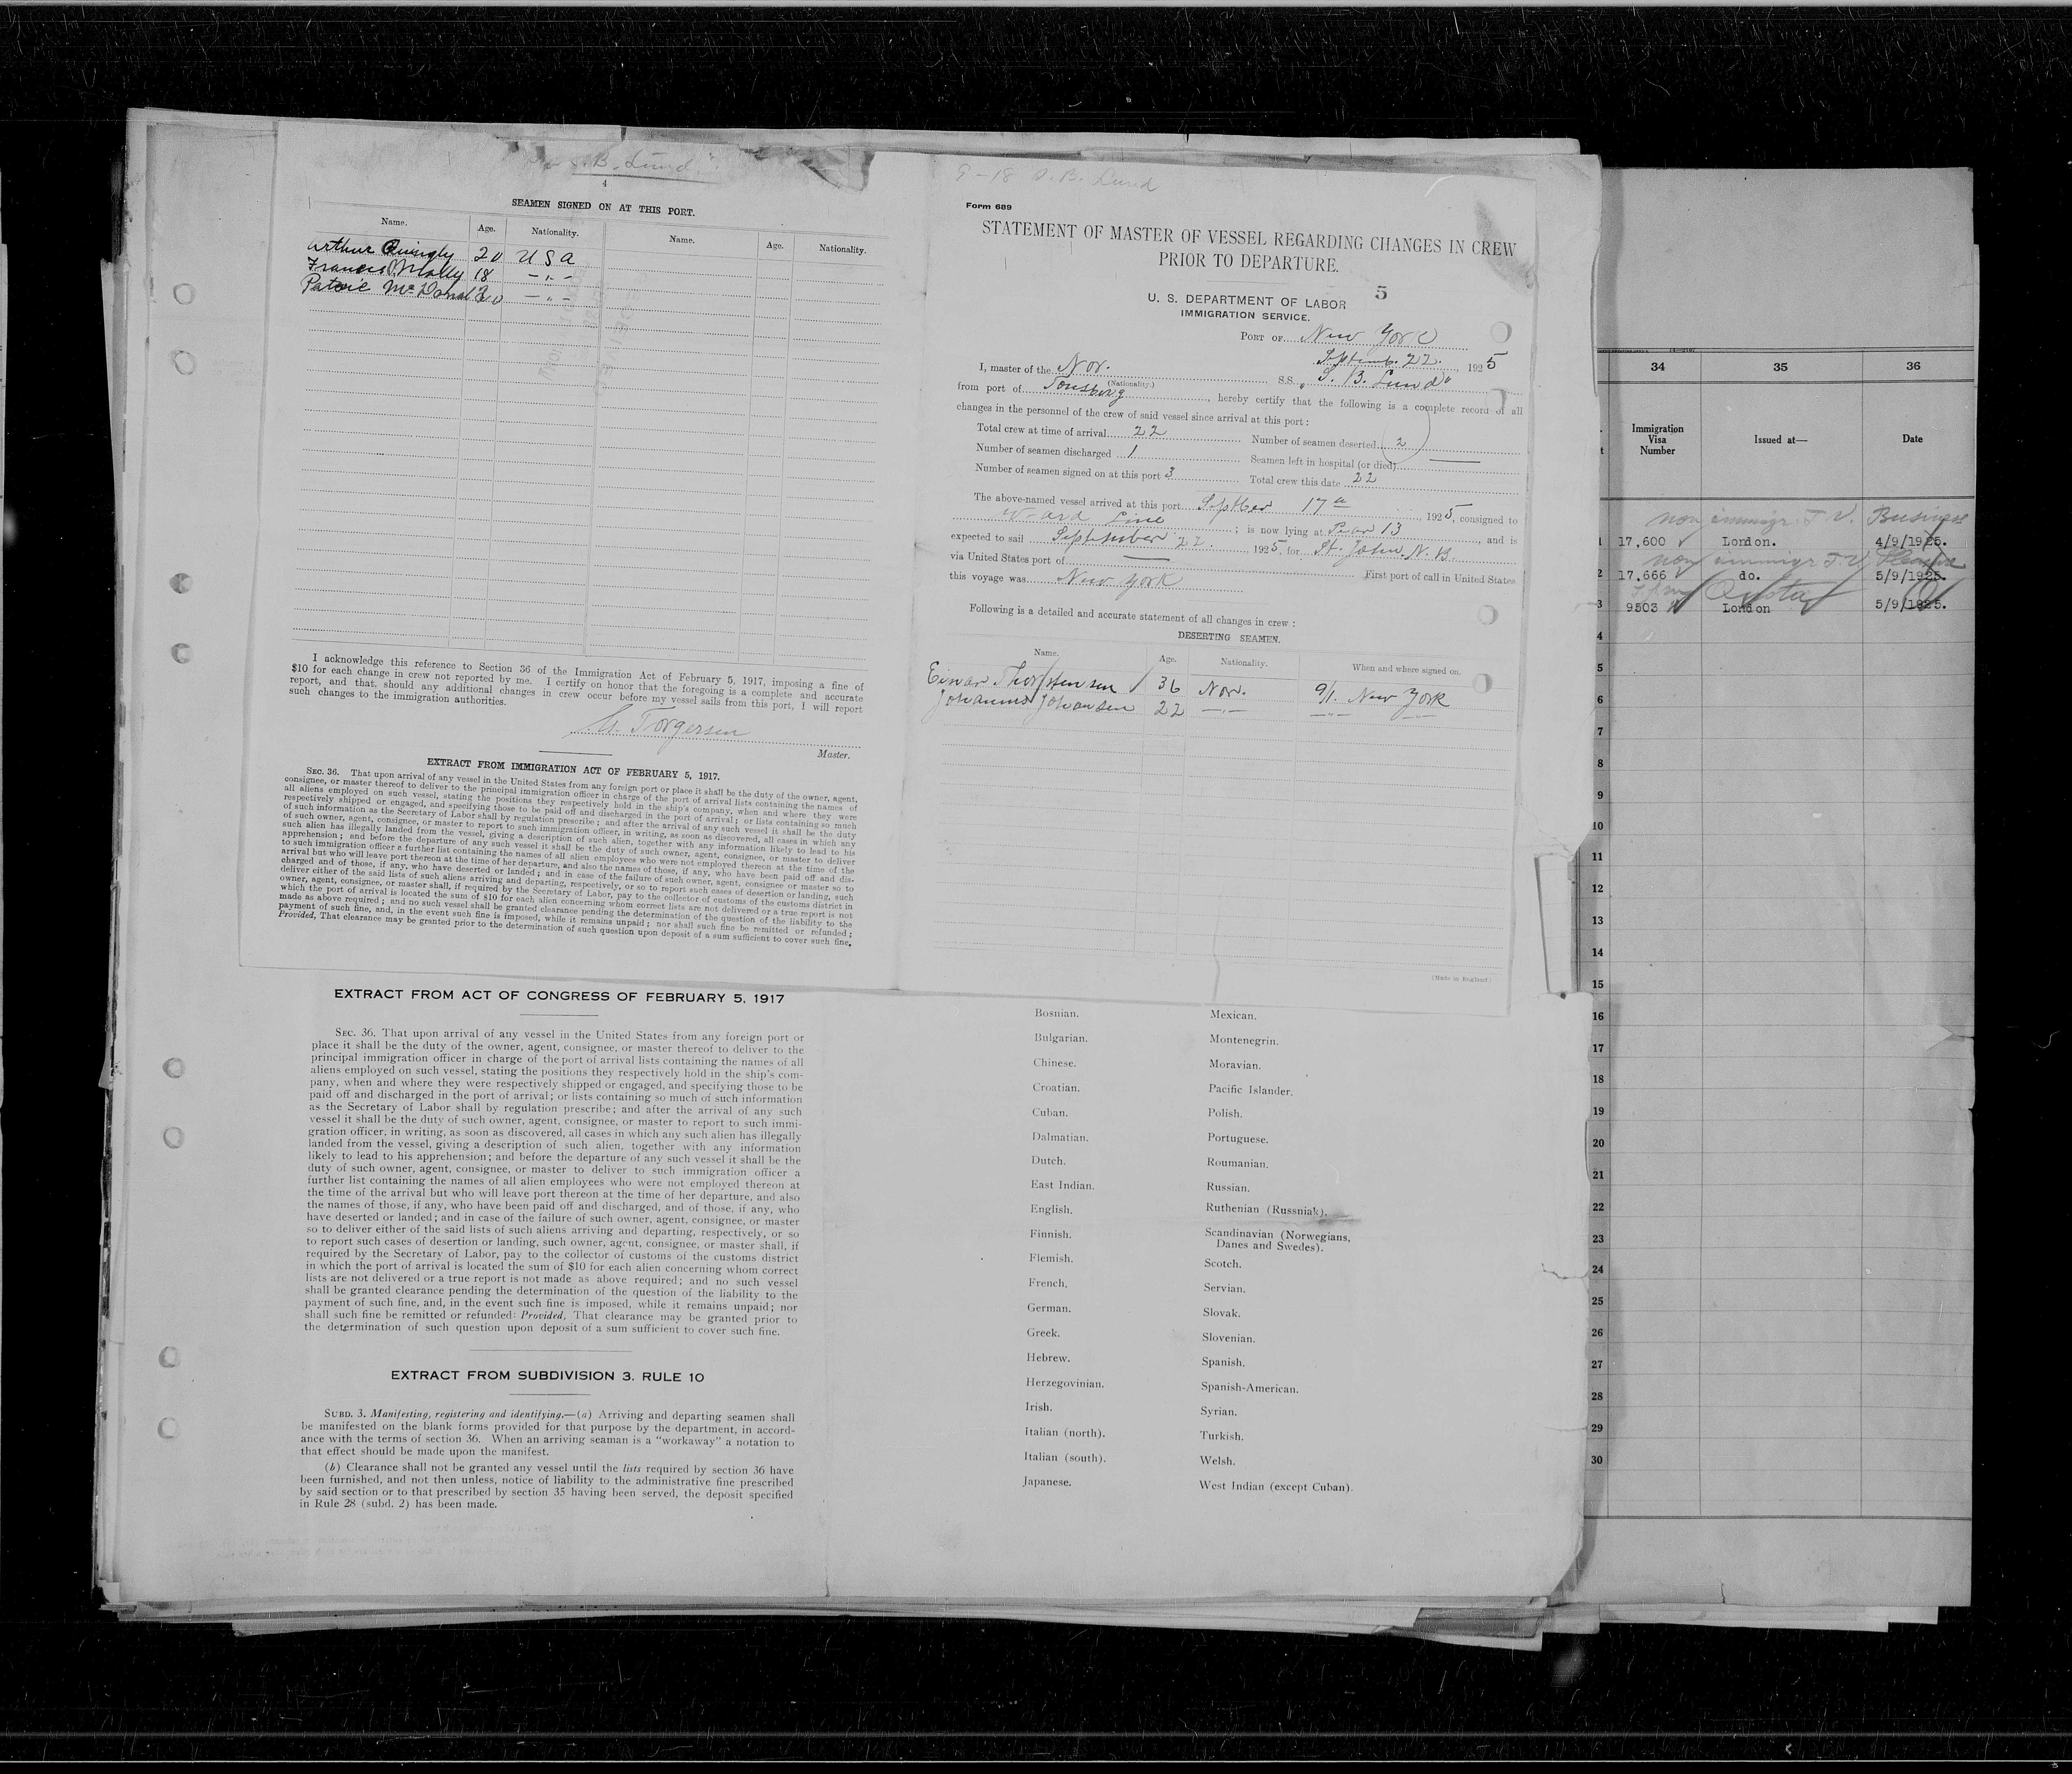 S. B. Lund
4
SEAMEN SIGNED ON AT THIS PORT.
Name. Age. Nationality. Name. Age. Nationality.
Arthur Quingly 20 U S A
Francis O'Mally 18 -"-
Patric Mc Donal 20 -"-
I acknowledge this reference to Section 36 of the Immigration Act of February 5, 1917, imposing a fine of
$10 for each change in crew not reported by me. I certify on honor that the foregoing is a complete and accurate
report, and that, should any additional changes in crew occur before my vessel sails from this port, I will report
such changes to the immigration authorities.
Torgersen
Master.
EXTRACT FROM IMMIGRATION ACT OF FEBRUARY 5, 1917.
SEC. 36. That upon arrival of any vessel in the United States from any foreign port or place it shall be the duty of the owner, agent,
consignee, or master thereof to deliver to the principal immigration officer in charge of the port of arrival lists containing the names of
all aliens employed on such vessel, stating the positions they respectively hold in the ship's company, when and where they were
respectively shipped or engaged, and specifying those to be paid off and discharged in the port of arrival; or lists containing so much
of such information as the Secretary of Labor shall by regulation prescribe; and after the arrival of any such vessel it shall be the duty
of such owner, agent, consignee, or master to report to such immigration officer, in writing, as soon as discovered, all cases in which any
such alien has illegally landed from the vessel, giving a description of such alien, together with any information likely to lead to his
apprehension; and before the departure of any such vessel it shall be the duty of such owner, agent, consignee, or master to deliver
to such immigration officer a further list containing the names of all alien employees who were not employed thereon at the time of the
arrival but who will leave port thereon at the time of her departure, and also the names of those, if any, who have been paid off and dis-
charged and of those, if any, who have deserted or landed; and in case of the failure of such owner, agent, consignee or master so to
deliver either of the said lists of such aliens arriving and departing, respectively, or so to report such cases of desertion or landing, such
owner, agent, consignee, or master shall, if required by the Secretary of Labor, pay to the collector of customs of the customs district in
which the port of arrival is located the sum of $10 for each alien concerning whom correct lists are not delivered or a true report is not
made as above required; and no such vessel shall be granted clearance pending the determination of the question of the liability to the
payment of such fine, and, in the event such fine is imposed, while it remains unpaid; nor shall such fine be remitted or refunded;
Provided, That clearance may be granted prior to the determination of such question upon deposit of a sum sufficient to cover such fine.
9-18 S. B. Lund
Form 689
STATEMENT OF MASTER OF VESSEL REGARDING CHANGES IN CREW
PRIOR TO DEPARTURE.
5
U. S. DEPARTMENT OF LABOR
IMMIGRATION SERVICE.
PORT OF New York
Septemb. 22. 1925
I, master of the Nor. S.S. "S. B. Lund"
(Nationality.)
from port of Tonsberg, hereby certify that the following is a complete record of all
changes in the personnel of the crew of said vessel since arrival at this port:
Total crew at time of arrival 22 Number of seamen deserted 2
Number of seamen discharged 1 Seamen left in hospital (or died) —
Number of seamen signed on at this port 3 Total crew this date 22
The above-named vessel arrived at this port Septber 17th 1925, consigned to
Ward Line; is now lying at Pear 13, and is
expected to sail September 22. 1925, for St. John N. B.
via United States port of — First port of call in United States
this voyage was New York
Following is a detailed and accurate statement of all changes in crew:
DESERTING SEAMEN.
Name. Age. Nationality. When and where signed on.
Einar Thorstensen 36 Nor. 9/1. New York
Johannes Johansen 22 -"- -"- -"-
(Made in England.)
EXTRACT FROM ACT OF CONGRESS OF FEBRUARY 5, 1917
SEC. 36. That upon arrival of any vessel in the United States from any foreign port or
place it shall be the duty of the owner, agent, consignee, or master thereof to deliver to the
principal immigration officer in charge of the port of arrival lists containing the names of all
aliens employed on such vessel, stating the positions they respectively hold in the ship's com-
pany, when and where they were respectively shipped or engaged, and specifying those to be
paid off and discharged in the port of arrival; or lists containing so much of such information
as the Secretary of Labor shall by regulation prescribe; and after the arrival of any such
vessel it shall be the duty of such owner, agent, consignee, or master to report to such immi-
gration officer, in writing, as soon as discovered, all cases in which any such alien has illegally
landed from the vessel, giving a description of such alien, together with any information
likely to lead to his apprehension; and before the departure of any such vessel it shall be the
duty of such owner, agent, consignee, or master to deliver to such immigration officer a
further list containing the names of all alien employees who were not employed thereon at
the time of the arrival but who will leave port thereon at the time of her departure, and also
the names of those, if any, who have been paid off and discharged, and of those, if any, who
have deserted or landed; and in case of the failure of such owner, agent, consignee, or master
so to deliver either of the said lists of such aliens arriving and departing, respectively, or so
to report such cases of desertion or landing, such owner, agent, consignee, or master shall, if
required by the Secretary of Labor, pay to the collector of customs of the customs district
in which the port of arrival is located the sum of $10 for each alien concerning whom correct
lists are not delivered or a true report is not made as above required; and no such vessel
shall be granted clearance pending the determination of the question of the liability to the
payment of such fine, and, in the event such fine is imposed, while it remains unpaid; nor
shall such fine be remitted or refunded: Provided, That clearance may be granted prior to
the determination of such question upon deposit of a sum sufficient to cover such fine.
EXTRACT FROM SUBDIVISION 3. RULE 10
SUBD. 3. Manifesting, registering and identifying.—(a) Arriving and departing seamen shall
be manifested on the blank forms provided for that purpose by the department, in accord-
ance with the terms of section 36. When an arriving seaman is a "workaway" a notation to
that effect should be made upon the manifest.
(b) Clearance shall not be granted any vessel until the lists required by section 36 have
been furnished, and not then unless, notice of liability to the administrative fine prescribed
by said section or to that prescribed by section 35 having been served, the deposit specified
in Rule 28 (subd. 2) has been made.
Bosnian. Mexican.
Bulgarian. Montenegrin.
Chinese. Moravian.
Croatian. Pacific Islander.
Cuban. Polish.
Dalmatian. Portuguese.
Dutch. Roumanian.
East Indian. Russian.
English. Ruthenian (Russniak).
Finnish. Scandinavian (Norwegians,
Danes and Swedes).
Flemish. Scotch.
French. Servian.
German. Slovak.
Greek. Slovenian.
Hebrew. Spanish.
Herzegovinian. Spanish-American.
Irish. Syrian.
Italian (north). Turkish.
Italian (south). Welsh.
Japanese. West Indian (except Cuban).
34 35 36
Immigration
Visa
Number
Issued at—
Date
non immigr. T. V. Business
1 17,600 London. 4/9/1925.
non immigr T. V. Pleasure
2 17,666 do. 5/9/1925.
Quota
3 9503 London 5/9/1925.
4
5
6
7
8
9
10
11
12
13
14
15
16
17
18
19
20
21
22
23
24
25
26
27
28
29
30